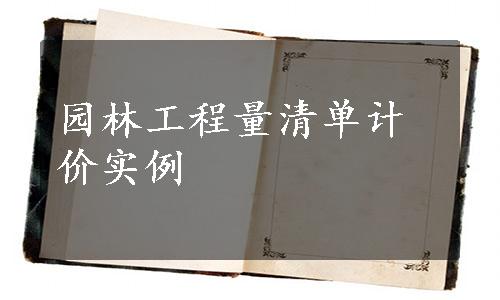 园林工程量清单计
价实例